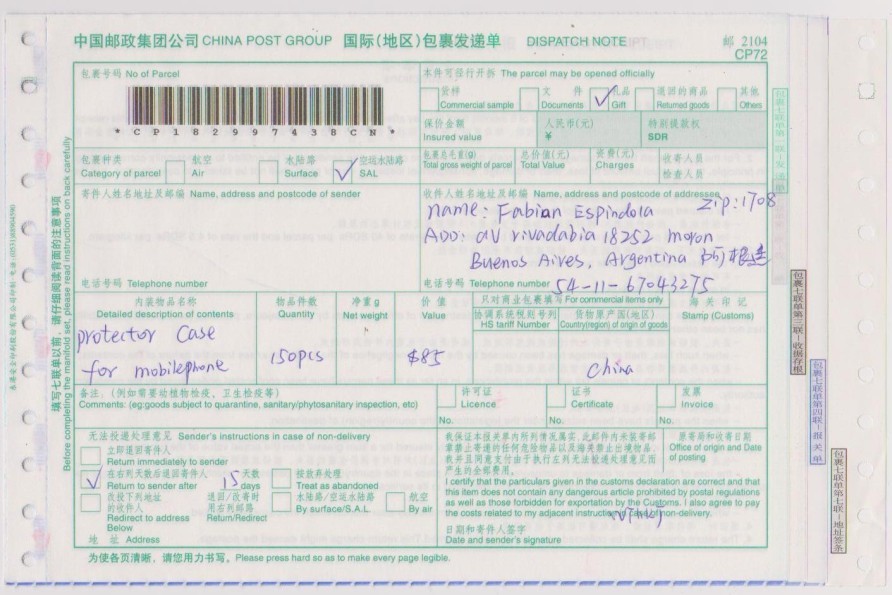 中国邮政集团公司 CHINA POST GROUP 国际(地区)包裹发递单 DISPATCH NOTE
邮 2104
CP72
包裹号码 No of Parcel
* C P 1 8 2 9 9 7 4 3 8 C N *
本件可径行开拆 The parcel may be opened officially
货样 Commercial sample
文件 Documents
礼品 Gift
退回的商品 Returned goods
其他 Others
保价金额 Insured value
人民币(元) ¥
特别提款权 SDR
包裹种类 Category of parcel
航空 Air
水陆路 Surface
空运水陆路 SAL
包裹总毛重(g) Total gross weight of parcel
总价值(元) Total Value
资费(元) Charges
收寄人员
检查人员
寄件人姓名地址及邮编 Name, address and postcode of sender
电话号码 Telephone number
收件人姓名地址及邮编 Name, address and postcode of addressee
name: Fabian Espindola Zip:1708
ADD: aV rivadabia 18252 moron
Buenos Aires, Argentina 阿根廷
电话号码 Telephone number 54-11-67043275
内装物品名称 Detailed description of contents
物品件数 Quantity
净重 g Net weight
价值 Value
只对商业包裹填写 For commercial items only
协调系统税则号列 HS tariff Number
货物原产国(地区) Country(region) of origin of goods
海关印记 Stamp (Customs)
protector Case
for mobilephone
150pcs
$85
China
备注: (例如需要动植物检疫、卫生检疫等)
Comments: (eg:goods subject to quarantine, sanitary/phytosanitary inspection, etc)
许可证 Licence No.
证书 Certificate No.
发票 Invoice No.
无法投递处理意见 Sender's instructions in case of non-delivery
立即退回寄件人
Return immediately to sender
在右列天数后退回寄件人 15 天数
Return to sender after days
按放弃处理
Treat as abandoned
改投下列地址的收件人
Redirect to address Below
退回/改寄时用右列邮路
Return/Redirect
水陆路/空运水陆路
By surface/S.A.L
航空
By air
地址 Address
我保证本报关单内所列情况属实,此邮件内未装寄邮
章禁止寄递的任何危险物品以及海关禁止出境物品.
我并且同意支付由于执行左列无法投递处理意见而
产生的全部费用.
I certify that the particulars given in the customs declaration are correct and that
this item does not contain any dangerous article prohibited by postal regulations
as well as those forbidden for exportation by the Customs. I also agree to pay
the costs related to my adjacent instruction non-delivery.
日期和寄件人签字
Date and sender's signature
原寄局和收寄日期
Office of origin and Date of posting
为使各页清晰,请您用力书写, Please press hard so as to make every page legible.
填写七联单以前,请仔细阅读背面的注意事项
Before completing the manifold set, please read instructions on back carefully
包裹七联单第三联—收据存根
包裹七联单第四联—报关单
包裹七联单第七联—地址签条